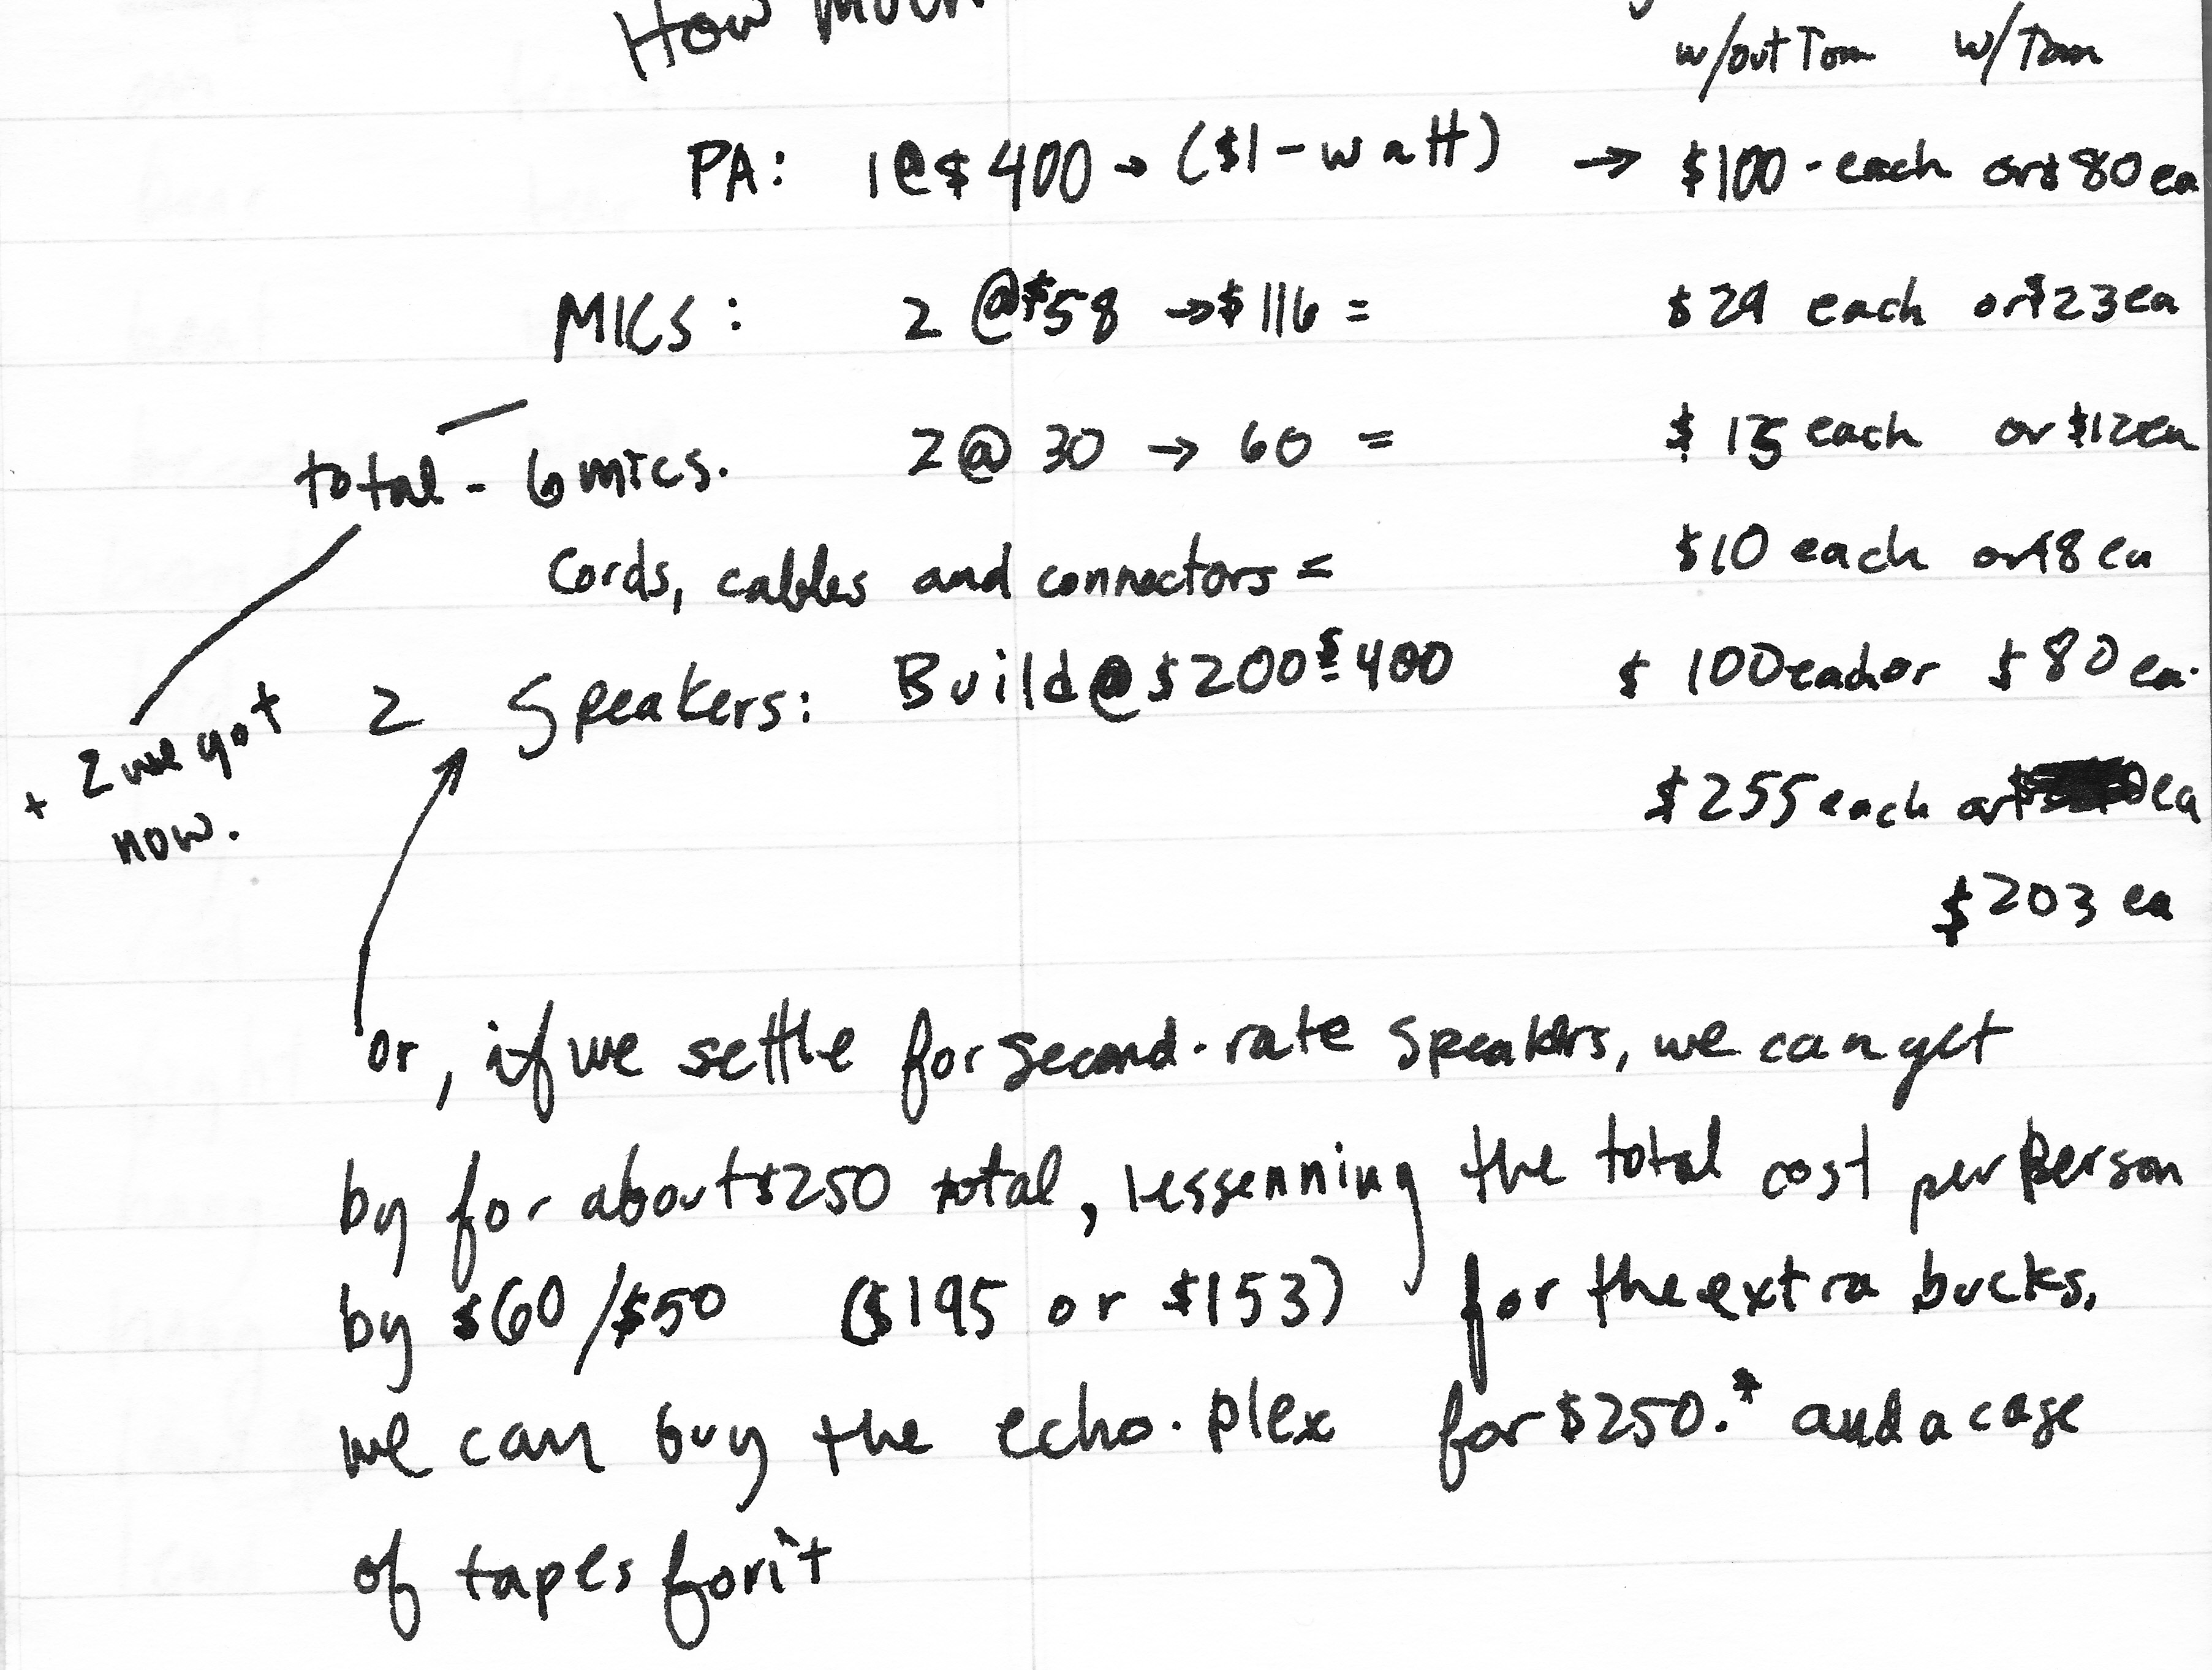 How much
w/out Tom w/Tom
PA: 1@$400 → ($1-watt) → $100-each or $80 ea
MICS: 2 @ $58 → $116 = $29 each or $23 ea
total - 6 mics. 2 @ 30 → 60 = $15 each or $12 ea
Cords, cables and connectors = $10 each or $8 ea
2 Speakers: Build @ $200 = $400 $100 each or $80 ea.
+ 2 we got
now.
$255 each or $ ea
$203 ea
or, if we settle for second-rate speakers, we can get
by for about $250 total, lessenning the total cost per person
by $60/$50 ($195 or $153) for the extra bucks,
we can buy the echo-plex for $250.* and a case
of tapes for it